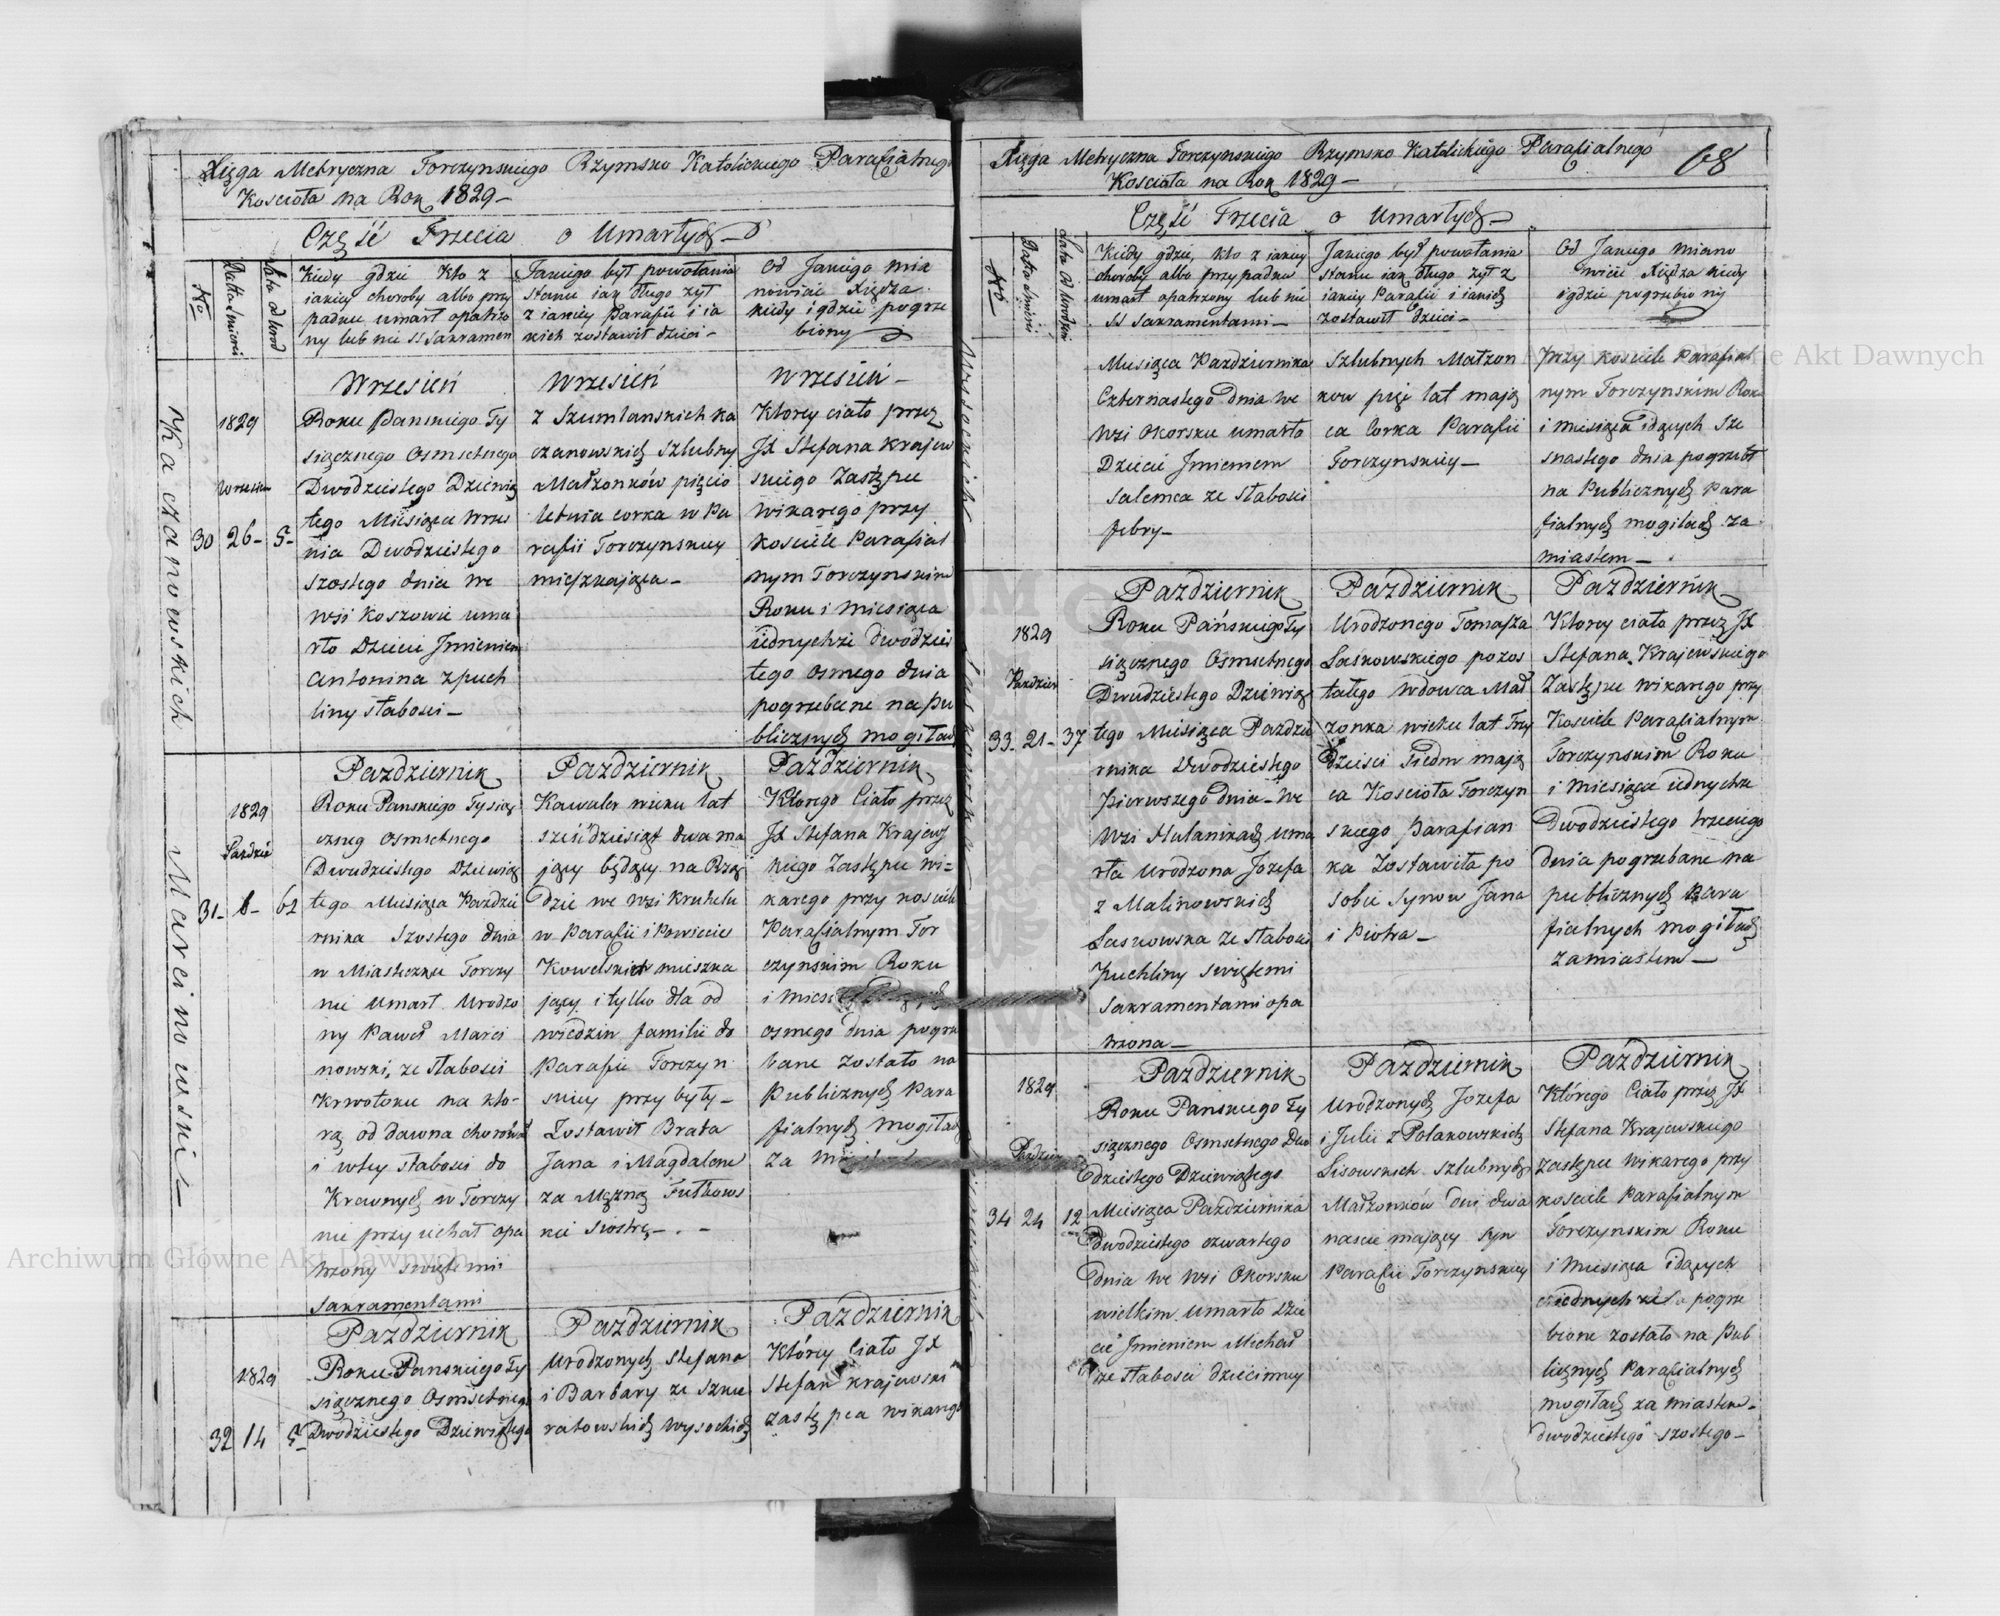 Xięga Metryczna Torczynskiego Rzymsko Katolickiego Parafialnego
Koscioła na Rok 1829 –
Część Trzecia o Umarłych
No
Datta Smierci
Lata od Urod
Kiedy gdzie Kto z
iakiey choroby albo przy
padku umarł opatrzo
ny lub nie SS Sakramen
Jakiego był powołania
stanu iak długo zył
z iakiey Parafii i ia
kich zostawił dzieci –
Od Jakiego mia
nowicie Xiędza
kiedy i gdzie pogrze
biony
Kaczanowskich
1829
Wrzesień
30 26– 5–
Wrzesień
Roku Panskiego Ty
siącznego Osmsetnego
Dwodziestego Dziewią
tego Miesiąca Wrzes
nia Dwodziestego
szostego dnia we
wsi Koszowie uma
rło Dziecie Jmieniem
Antonina z puch
liny słabosci –
Wrzesień
z Szumlanskich Ka
czanowskich szlubny
Małzonków pięcio
letnia corka w Pa
rafii Torczynskiey
mieszkaiąca –
Wrzesień –
Ktorey ciało przez
JX Stefana Krajew
skiego Zastępcę
wikarego przy
kosciele Parafial
nym Torczynskim
Roku i miesiąca
iednychze dwodzies
tego osmego dnia
pogrzebane na pu
blicznych mogiłach
Marcinowski –
1829
Pazdzie
31– 6– 62
Pazdziernik
Roku Panskiego Tysią
czneg Osmsetnego
Dwudziestego Dziewią
tego Miesiąca Pazdzie
rnika Szostego dnia
w Miasteczku Torczy
nie umarł Urodzo
ny Paweł Marci
nowski, ze słabosci
Krwotoku na kto–
rą od dawna chorował
i w tey słabosci do
Krewnych w Torczy
nie przyiechał opa
trzony swiętemi
Sakramentami
Pazdziernik
Kawaler wieku lat
sześćdziesiąt dwa ma
jący będący na Rzą
dzie we wsi Kruhelu
w Parafii i Powiecie
Kowelskich mieszka
jący i tylko dla od
wiedzin familii do
Parafii Torczyn
skiey przybyły –
Zostawił Brata
Jana i Magdalene
za Męzną Futkows
kie siostrę – . –
Pazdziernik
Ktorego Ciało przez
JX Stefana Krajews
kiego Zastępcę wi–
karego przy kosciele
Parafialnym Tor
czynskim Roku
osmego dnia pogrze
bane zostało na
Publicznych Para
fialnych mogiłach
1829
32 14 5–
Pazdziernik
Roku Panskiego Ty
siącznego Osmsetnego
Dwodziestego Dziewiątego
Pazdziernik
Urodzonych Stefana
i Barbary ze Szku
ratowskich Wysockich
Pazdziernik
Którey Ciało JX
Stefan Krajewski
Zastępca wikarego
Xięga Metryczna Torczynskiego Rzymsko Katolickiego Parafialnego
Kosciała na Rok 1829 –
68
Część Trzecia o Umarłych
No
Datta Smierci
Lata Od Urodzin
Kiedy gdzie, kto z iakiey
choroby albo przypadku
umarł opatrzony lub nie
SS Sakramentami –
Jakiego był powołania
stanu iak długo zył z
iakiey Parafii i iakich
zostawił dzieci –
Od Jakiego miano
wicie Xiędza kiedy
i gdzie pogrzebiony
Miesiąca Pazdziernika
Czternastego dnia we
wsi Okorsku umarło
Dziecie Jmieniem
Salemea ze słabosci
febry –
Szlubnych Małzon
kow pięc lat mają
ca Corka Parafii
Torczynskiey –
przy kosciele Parafial
nym Torczynskim Roku
i miesiąca idących sze
snastego dnia pogrzebł
na Publicznych Para
fialnych mogiłach za
miastem –
1829
Pazdzier
33– 21– 37
Pazdziernik
Roku Pańskiego Ty
siącznego Osmsetnego
Dwudziestego Dziewią
tego Miesiąca Pazdzie
rnika Dwodziestego
pierwszego dnia – we
wsi Hulanikach uma
rła Urodzona Jozefa
z Malinowskich
Laskowska ze słabosci
puchliny swiętemi
sakramentami opa
trzona –
Pazdziernik
Urodzonego Tomasza
Laskowskiego pozos
tałego wdowca Mał
zonka wieku lat Trzy
dziesci siedm mają
ca Kosciola Torczyn
skiego Parafian
ka Zostawiła po
sobie Synow Jana
i Piotra –
Pazdziernik
Ktorey ciało przez JX
Stefana Krajewskiego
Zastępcę wikarego przy
Kosciele Parafialnym
Torczynskim Roku
i miesiąca iednychze
Dwodziestego trzeciego
dnia pogrzebane na
publicznych Para
fialnych mogiłach
za miastem –
1829
Pazdzier
34 24 12
Pazdziernik
Roku Panskiego Ty
siącznego Osmsetnego Dwo
dziestego Dziewiątego
Miesiąca Pazdziernika
dwodziestego czwartego
dnia we wsi Okorsku
wielkim umarło Dzie
cie Jmieniem Michał
ze słabosci dziecinney
Pazdziernik
Urodzonych Jozefa
i Julii z Polanowskich
Lisowskich szlubnych
Małzonków dni dwa
nascie mający syn
Parafii Torczynskiey
Pazdziernik
Którego Ciało przez JX
Stefana Krajewskiego
zastępcę wikarego przy
kosciele Parafialnym
Torczynskim Roku
i miesiąca idących
pogrze
bione zostało na Pub
licznych Parafialnych
mogiłach za miastem –
dwodziestego szostego –
Archiwum Główne Akt Dawnych
Archiwum Główne Akt Dawnych